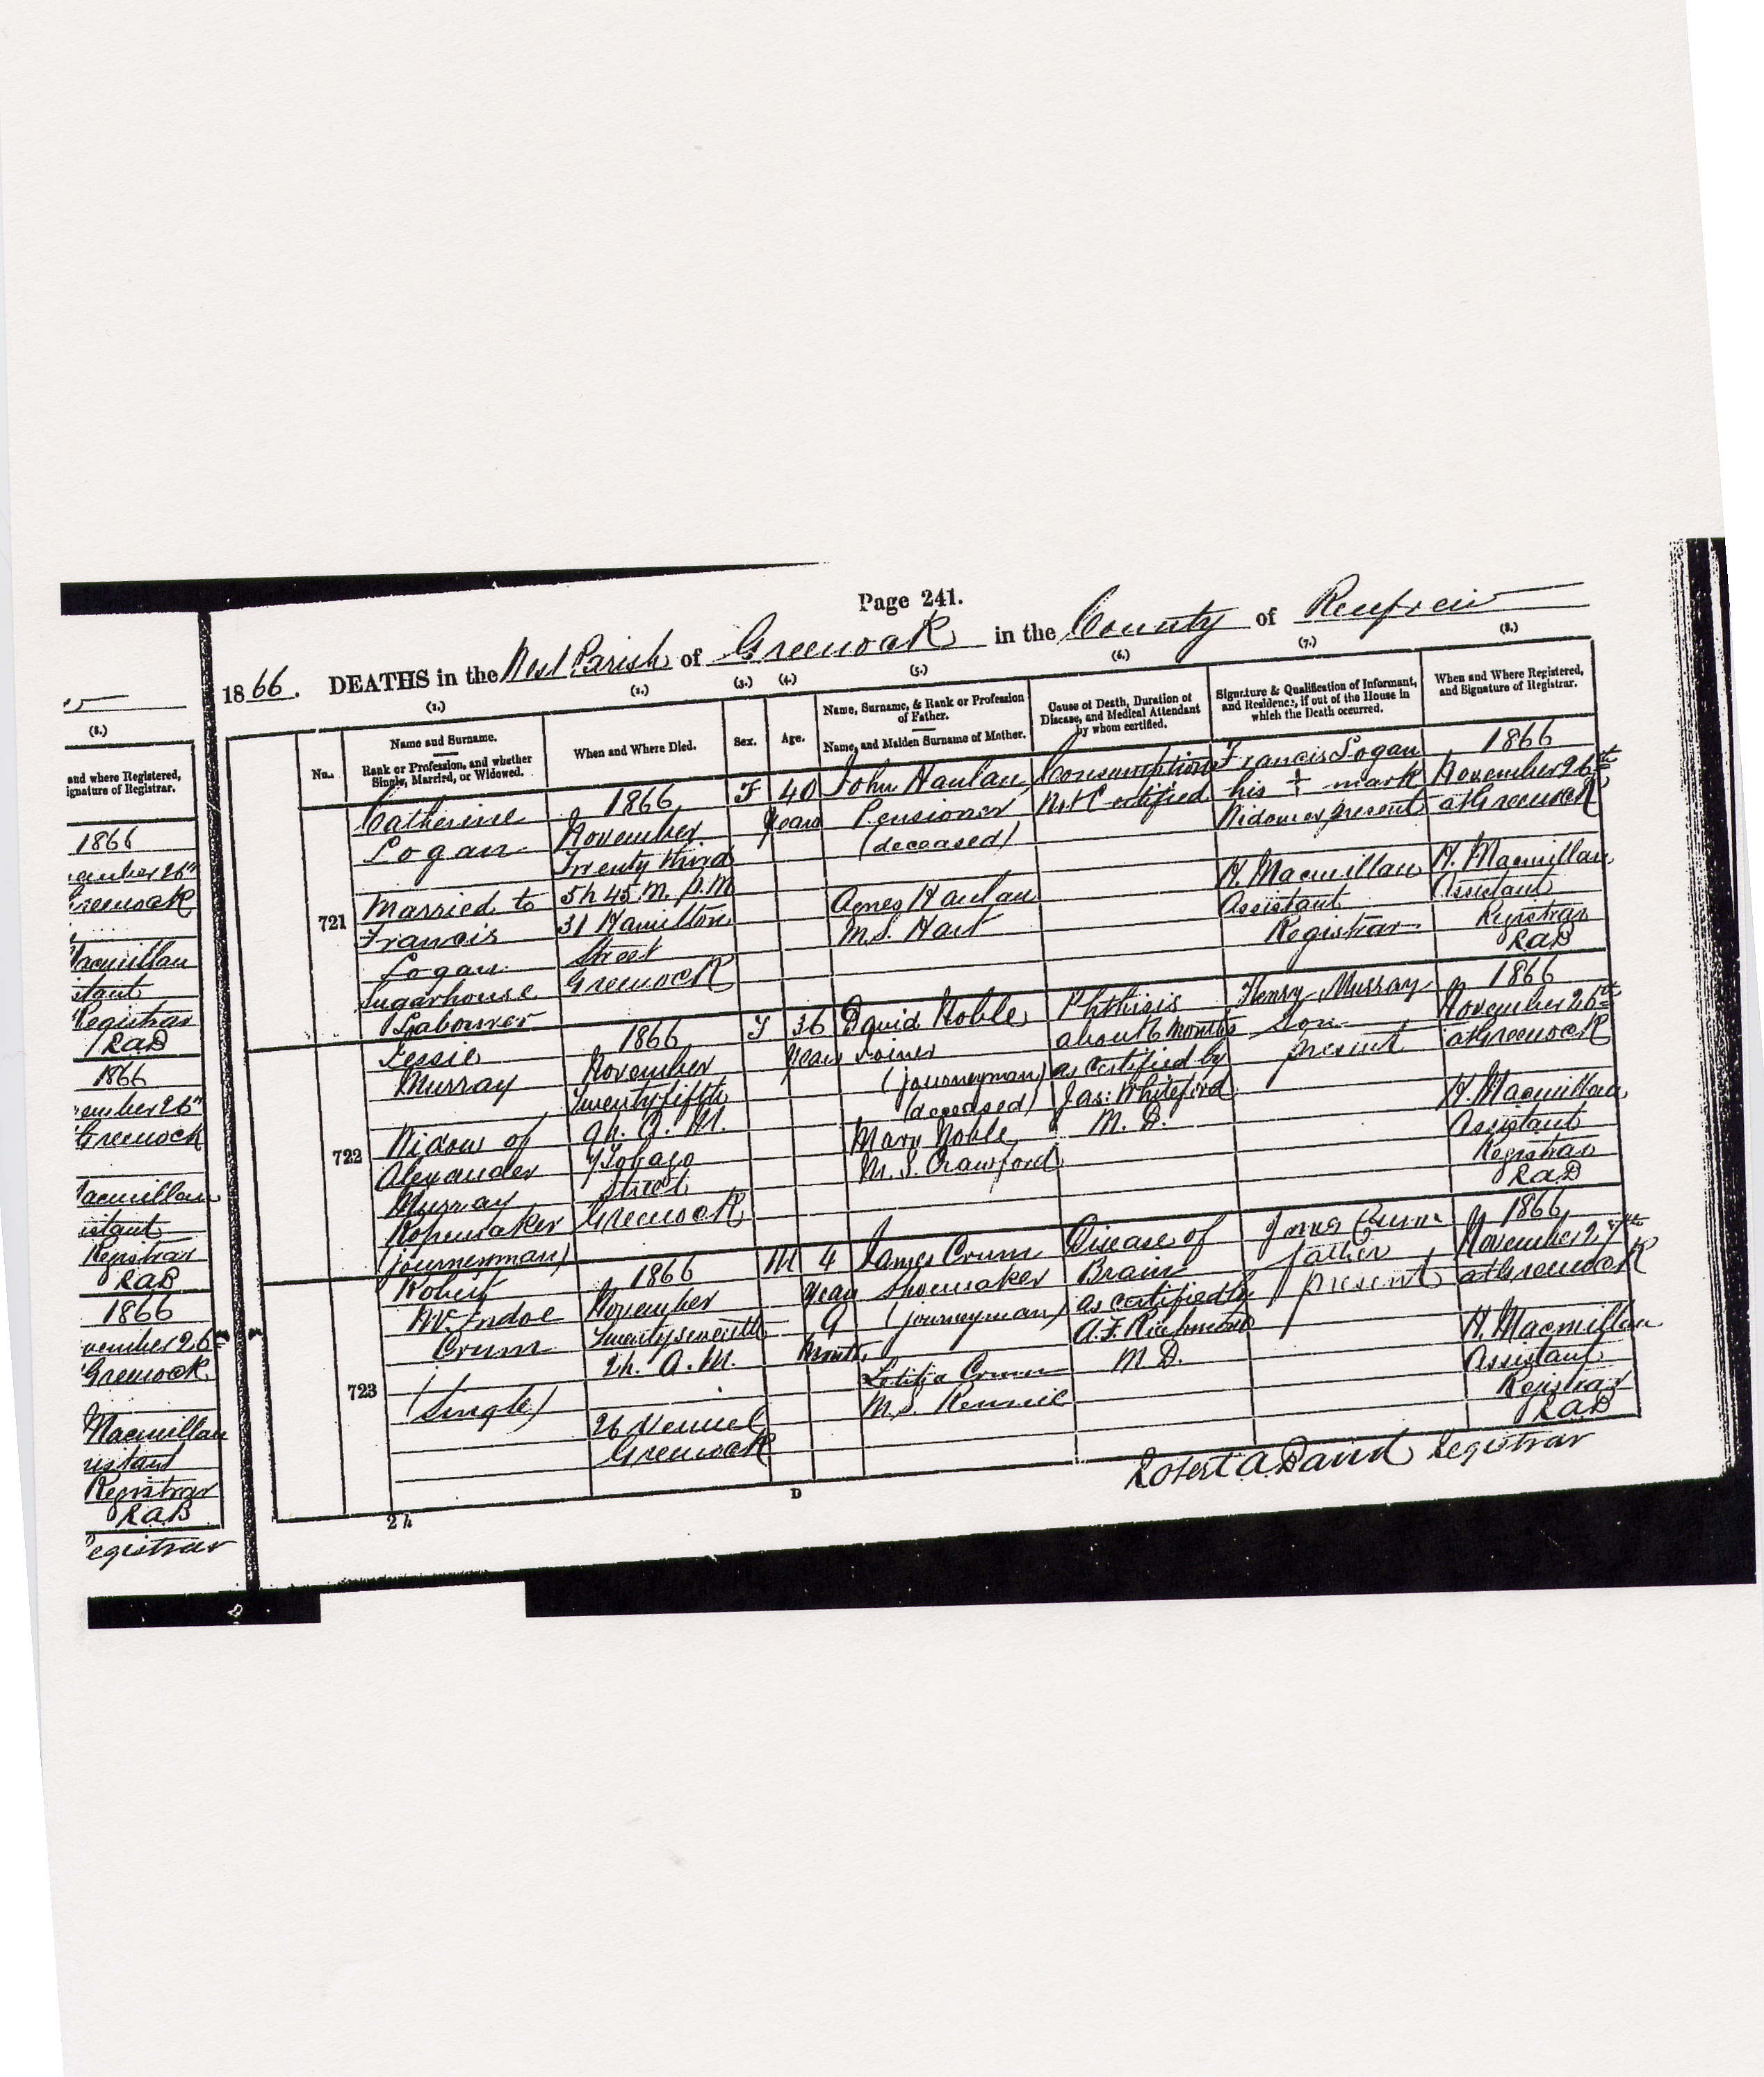 Page 241.
1866. DEATHS in the West Parish of Greenock in the County of Renfrew
(1.) (2.) (3.) (4.) (5.) (6.) (7.) (8.)
No.
Name and Surname.
Rank or Profession, and whether
Single, Married, or Widowed.
When and Where Died.
Sex.
Age.
Name, Surname, & Rank or Profession
of Father.
Name, and Maiden Surname of Mother.
Cause of Death, Duration of
Disease, and Medical Attendant
by whom certified.
Signature & Qualification of Informant,
and Residence, if out of the House in
which the Death occurred.
When and Where Registered,
and Signature of Registrar.
721
Catherine
Logan
Married to
Francis
Logan
Sugarhouse
Labourer
1866
November
Twenty third
5h 45 m. P.M
31 Hamilton
Street
Greenock
F
40
years
John Hanlan
Pensioner
(deceased)
Agnes Hanlan
M.S. Hart
Consumption
Not Certified
Francis Logan
his + mark
Widower present
H. Macmillan
Assistant
Registrar
1866
November 26th
at Greenock
H. Macmillan
Assistant
Registrar
RAD
722
Jessie
Murray
Widow of
Alexander
Murray
Ropemaker
(journeyman)
1866
November
Twenty fifth
9h. A. M.
7 Tobago
Street
Greenock
F
36
years
David Noble
Joiner
(journeyman)
(deceased)
Mary Noble
M.S. Crawford
Phthisis
about 6 months
as certified by
Jas: Whiteford
M. D.
Henry Murray
Son
present
1866
November 26th
at Greenock
H. Macmillan
Assistant
Registrar
RAD
723
Robert
McIndoe
Crum
(Single)
1866
November
Twenty seventh
2h. A. M.
26 Vennel
Greenock
M
4
years
9
months
James Crum
Shoemaker
(journeyman)
Letitia Crum
M.S. Rennie
Disease of
Brain
as certified by
A.F. Richmond
M D.
James Crum
father
present
1866
November 27th
at Greenock
H. Macmillan
Assistant
Registrar
RAD
Robert A. David Registrar
D
2 h
(8.)
and where Registered,
ignature of Registrar.
1866
ember 26th
Greenock
Macmillan
stant
Registrar
RAD
1866
ember 26th
Greenock
acmillan
istant
Registrar
RAD
1866
vember 26
Greenock
Macmillan
istant
Registrar
RAD
egistrar